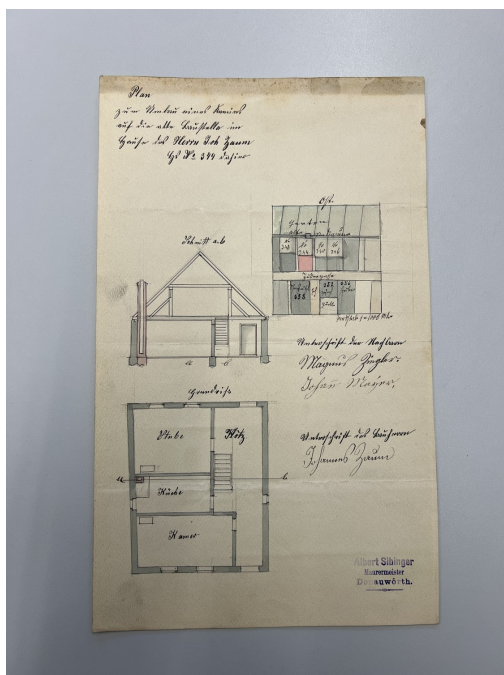 Plan
zum Umbau eines Kamins
auf die alte Baustelle im
Hause des Herrn Joh Zaum
Hs № 344 dahier
Ost.
Gärten
Schnitt a.b
a b
Unterschrift der Nachbarn
Magnus Ziegler.
Johan Mayer.
Grundriss
Stube
Flötz
Unterschrift des Bauherrn
Johannes Zaum
a b
Küche
Kamer
Albert Sibinger
Maurermeister
Donauwörth.